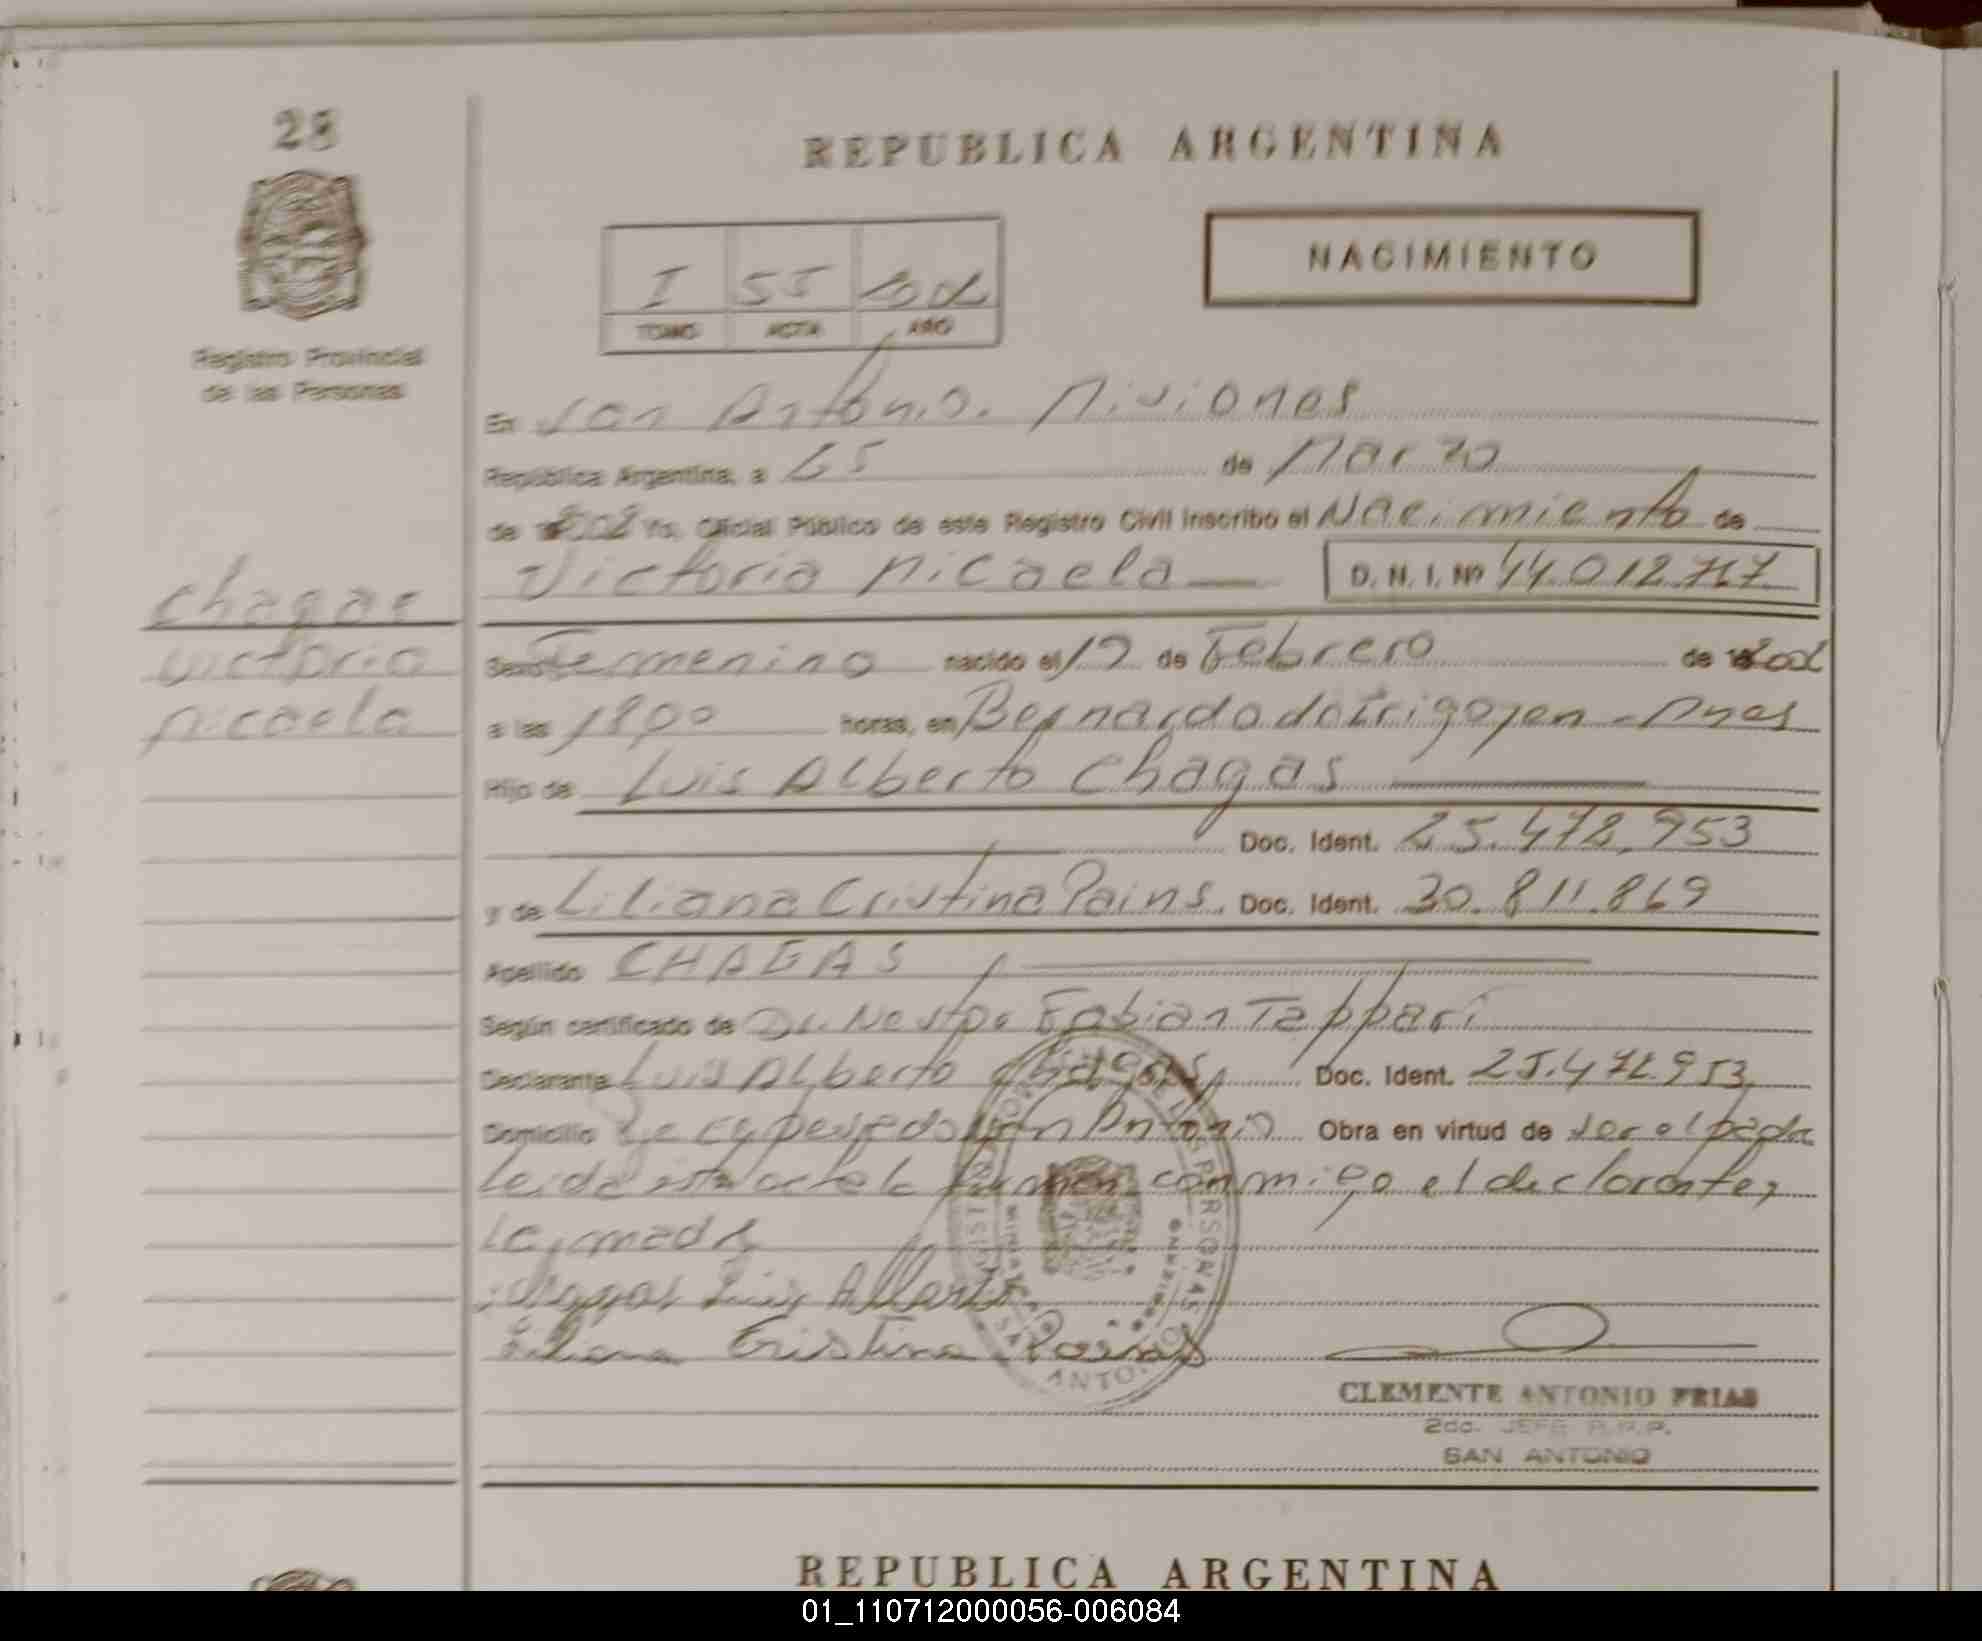 28
REPUBLICA ARGENTINA
NACIMIENTO
I 55 2002
TOMO ACTA AÑO
Registro Provincial
de las Personas
En San Antonio. Misiones
República Argentina, a 25 de Marzo
de 2002 Yo, Oficial Público de este Registro Civil inscribo el Nacimiento de
Victoria Micaela D. N. I. Nº 44.012.767
Chagas
Victoria
Micaela
Sexo Femenino nacido el 19 de Febrero de 2002
a las 1800 horas, en Bernardo de Irigoyen - Mnes
Hijo de Luis Alberto Chagas
Doc. Ident. 25.472.953
y de Liliana Cristina Pains. Doc. Ident. 30.811.869
Apellido CHAGAS
Según certificado de Dr. Nestor Fabian Tappari
Declarante Luis Alberto Chagas Doc. Ident. 25.472.953
Domicilio San Antonio Obra en virtud de ser el padre
Leida esta acta la firman conmigo el declarante,
la madre
Chagas Luis Alberto
Liliana Cristina
CLEMENTE ANTONIO FRIAS
2do. JEFE R.P.P.
SAN ANTONIO
REPUBLICA ARGENTINA
01_110712000056-006084